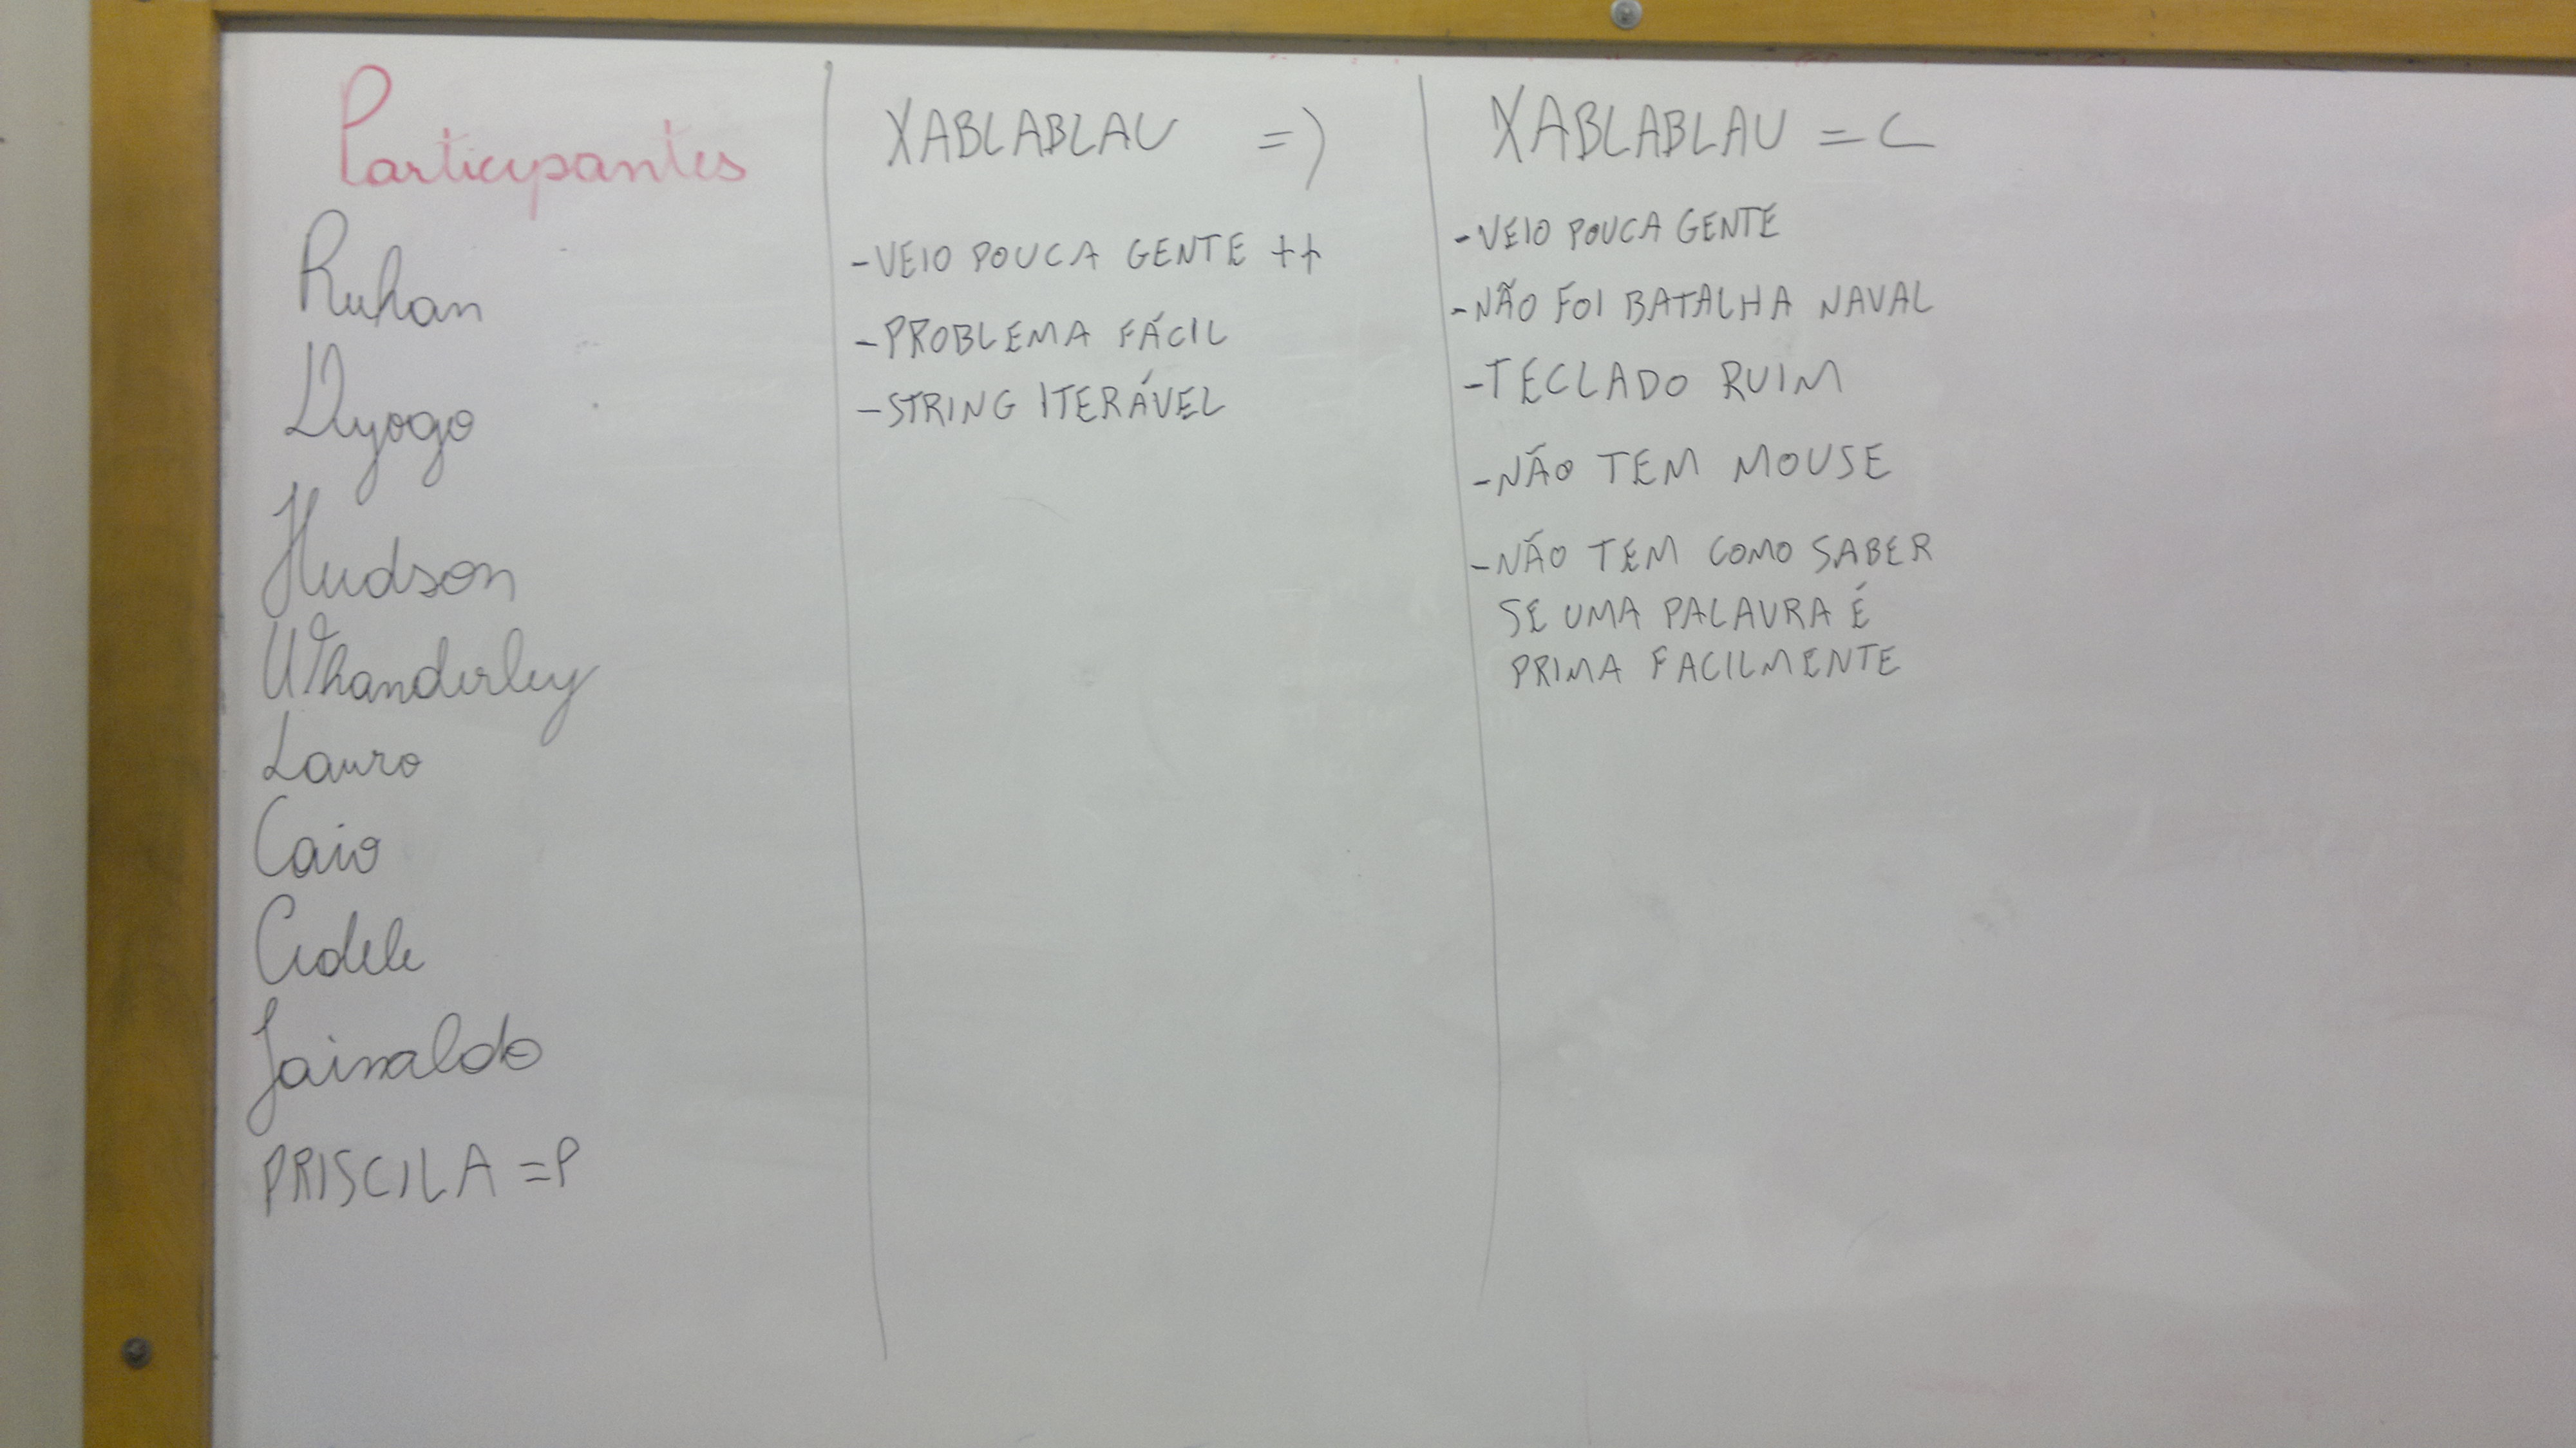 Participantes
Ruhan
Dyogo
Hudson
Whanderley
Lauro
Caio
Cidele
Jainaldo
PRISCILA =P
XABLABLAU =)
-VEIO POUCA GENTE ++
-PROBLEMA FÁCIL
-STRING ITERÁVEL
XABLABLAU =C
-VEIO POUCA GENTE
-NÃO FOI BATALHA NAVAL
-TECLADO RUIM
-NÃO TEM MOUSE
-NÃO TEM COMO SABER
SE UMA PALAVRA É
PRIMA FACILMENTE